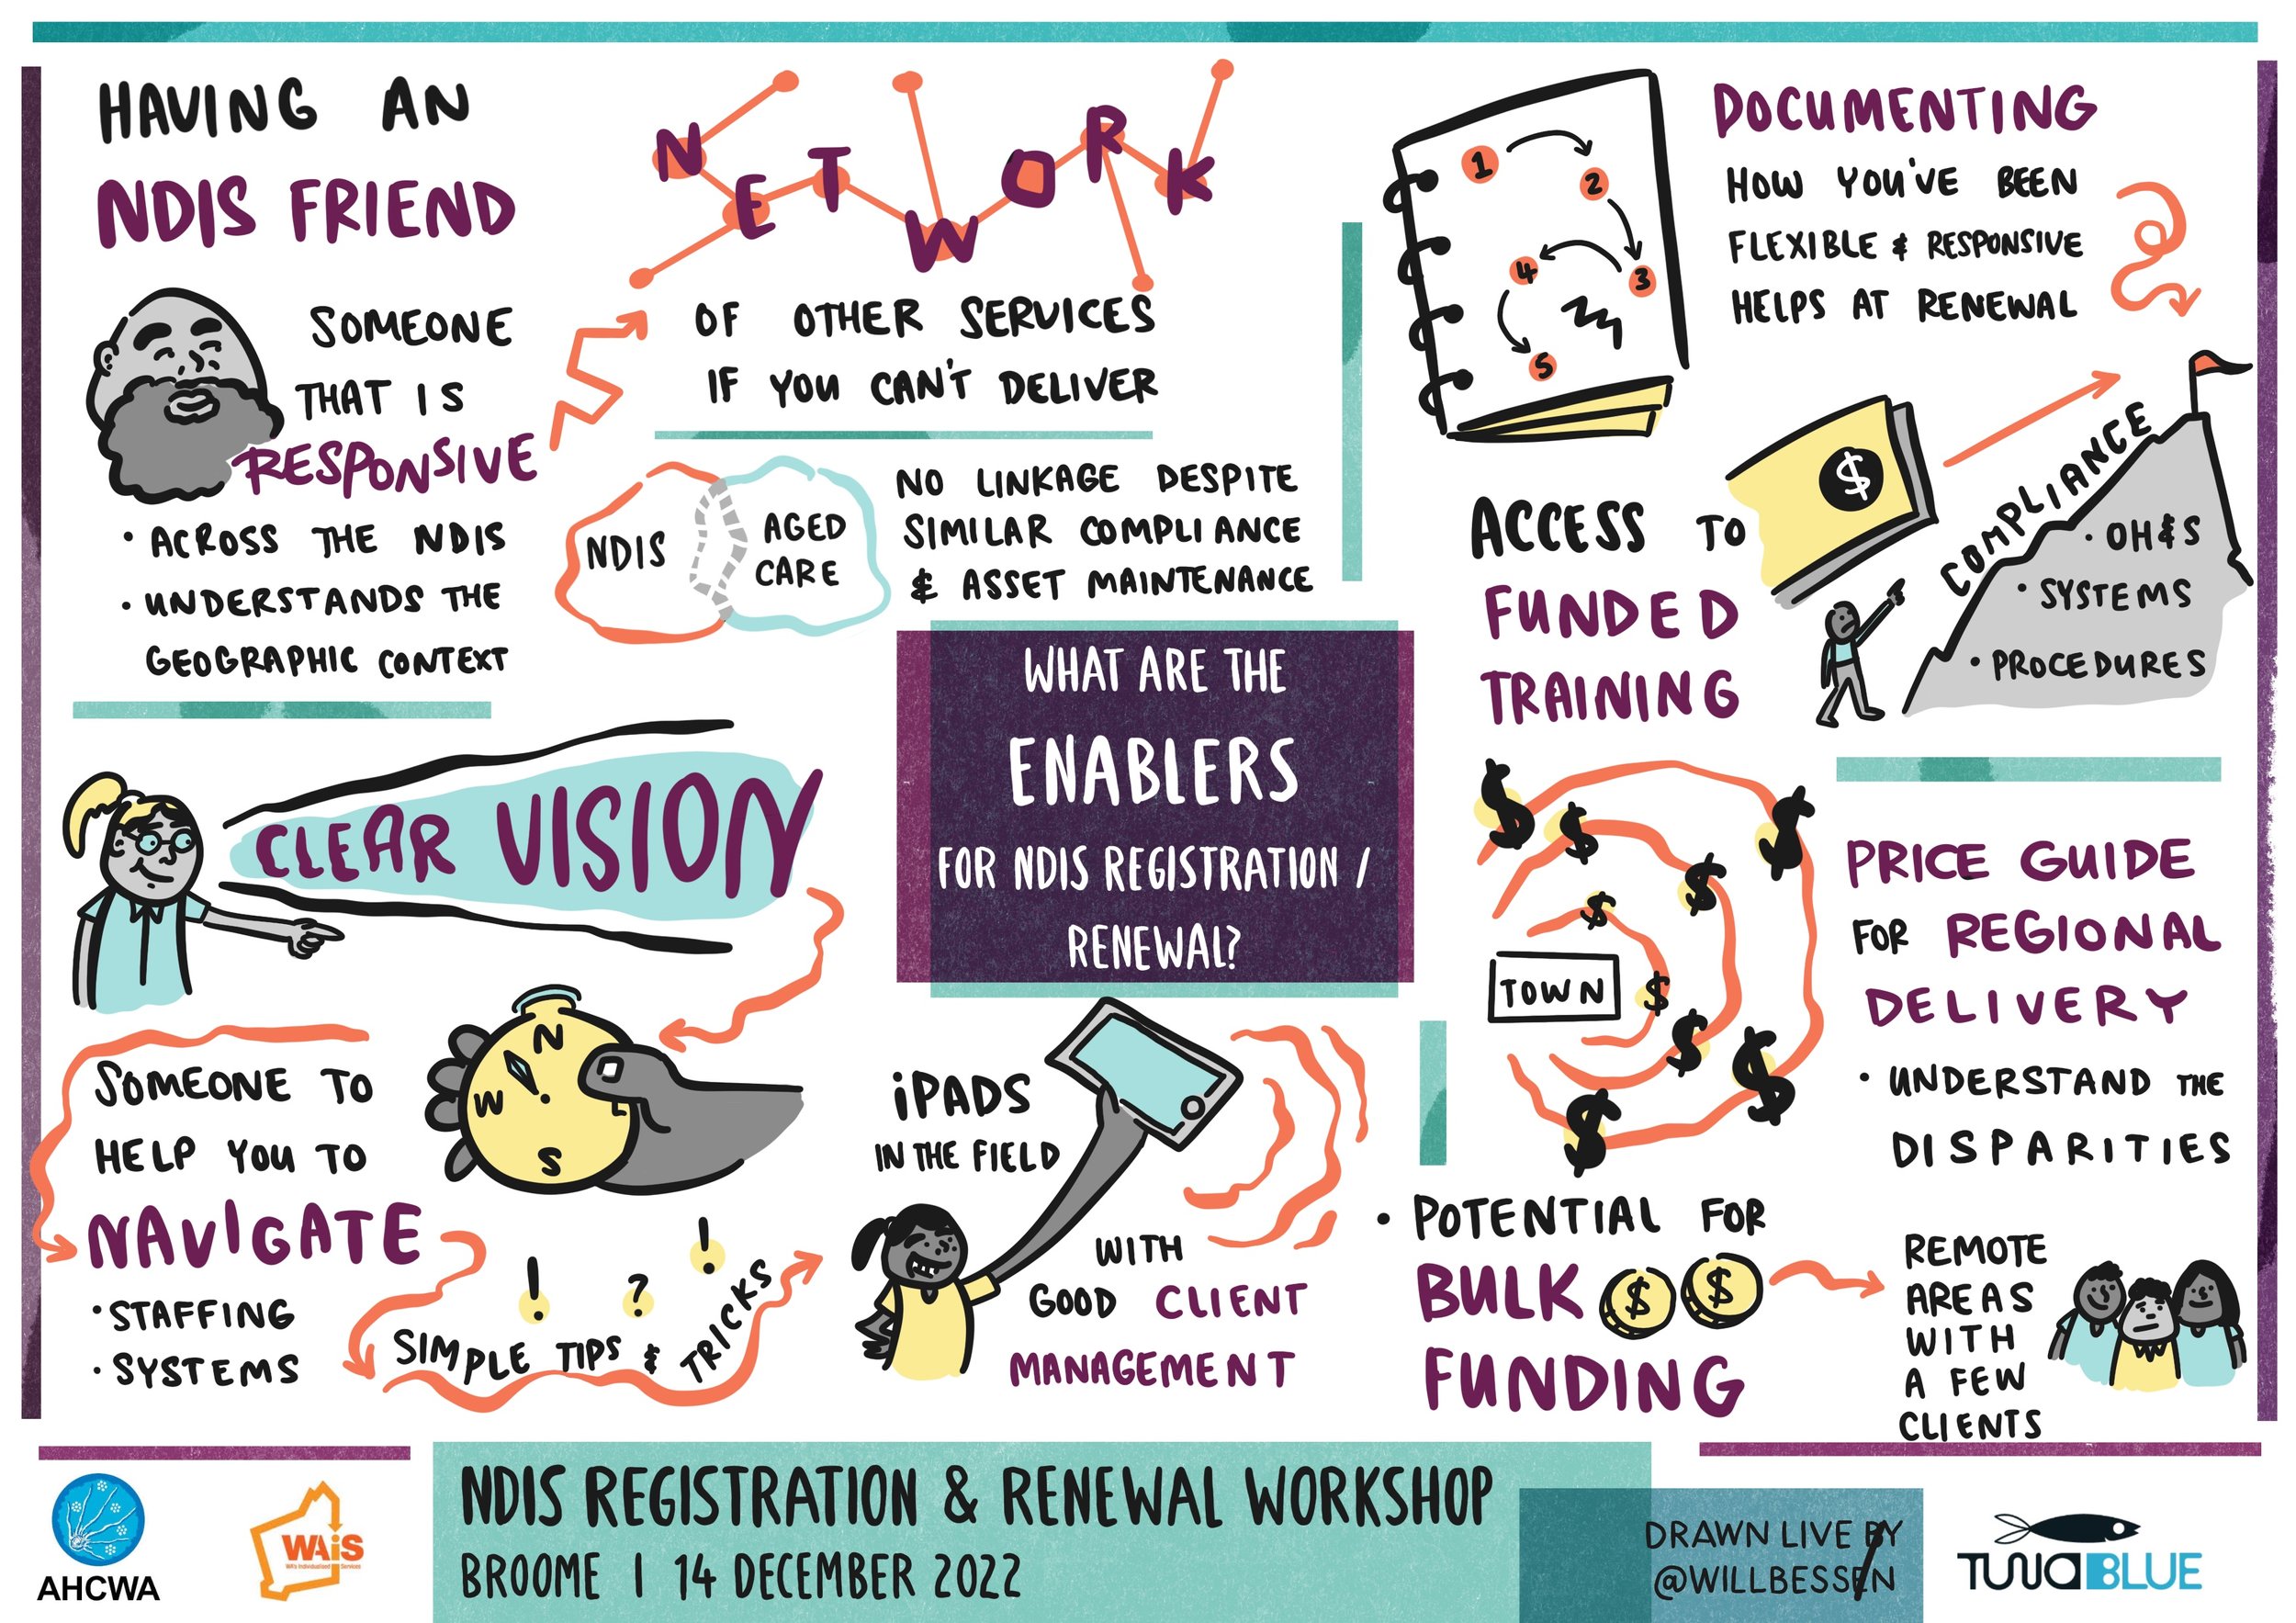 HAVING AN
NDIS FRIEND
SOMEONE
THAT IS
RESPONSIVE
• ACROSS THE NDIS
• UNDERSTANDS THE
GEOGRAPHIC CONTEXT
NETWORK
OF OTHER SERVICES
IF YOU CAN'T DELIVER
NDIS
AGED
CARE
NO LINKAGE DESPITE
SIMILAR COMPLIANCE
& ASSET MAINTENANCE
1
2
3
4
5
DOCUMENTING
HOW YOU'VE BEEN
FLEXIBLE & RESPONSIVE
HELPS AT RENEWAL
ACCESS TO
FUNDED
TRAINING
$
COMPLIANCE
• OH&S
• SYSTEMS
• PROCEDURES
WHAT ARE THE
ENABLERS
FOR NDIS REGISTRATION /
RENEWAL?
CLEAR VISION
N
W
E
S
SOMEONE TO
HELP YOU TO
NAVIGATE
• STAFFING
• SYSTEMS
! ? !
SIMPLE TIPS & TRICKS
iPADS
IN THE FIELD
WITH
GOOD CLIENT
MANAGEMENT
TOWN
$ $ $ $ $ $ $ $ $
PRICE GUIDE
FOR REGIONAL
DELIVERY
• UNDERSTAND THE
DISPARITIES
• POTENTIAL FOR
BULK $ $
FUNDING
REMOTE
AREAS
WITH
A FEW
CLIENTS
AHCWA
WAiS
WA's Individualised Services
NDIS REGISTRATION & RENEWAL WORKSHOP
BROOME | 14 DECEMBER 2022
DRAWN LIVE BY
@WILLBESSEN
TUNABLUE